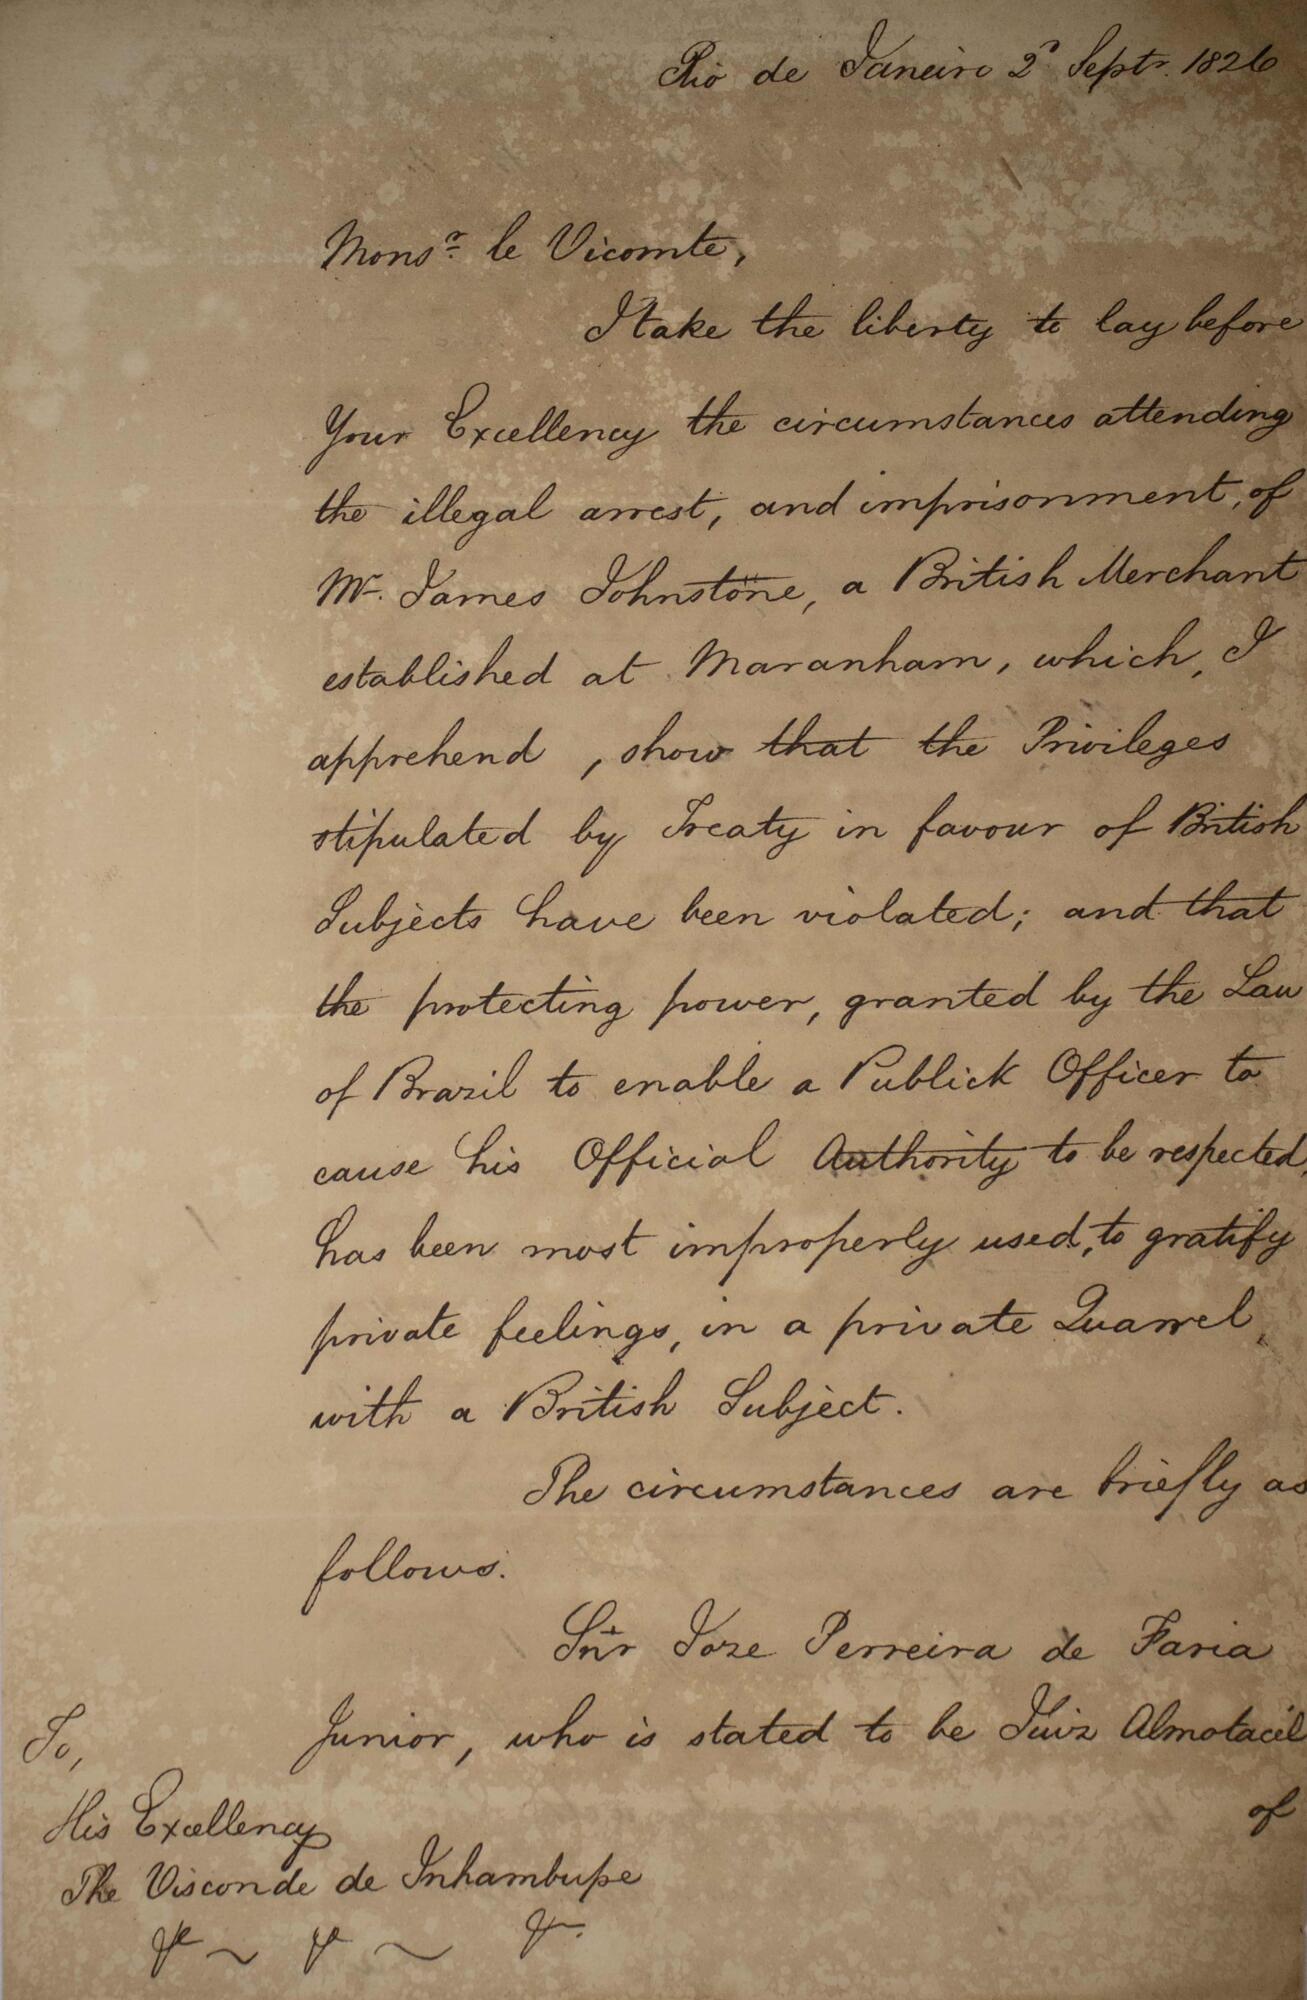 Rio de Janeiro 2ᵈ Septr. 1826
Monsʳ le Vicomte,
I take the liberty to lay before
Your Excellency the circumstances attending
the illegal arrest, and imprisonment, of
Mr. James Johnstone, a British Merchant
established at Maranham, which, I
apprehend, show that the Privileges
stipulated by Treaty in favour of British
Subjects have been violated; and that
the protecting power, granted by the Law
of Brazil to enable a Publick Officer to
cause his Official Authority to be respected,
has been most improperly used, to gratify
private feelings, in a private Quarrel,
with a British Subject.
The circumstances are briefly as
follows.
Snr Joze Perreira de Faria
Junior, who is stated to be Juiz Almotacél
of
To,
His Excellency
The Visconde de Inhambupe
&c ~ &c ~ &c.